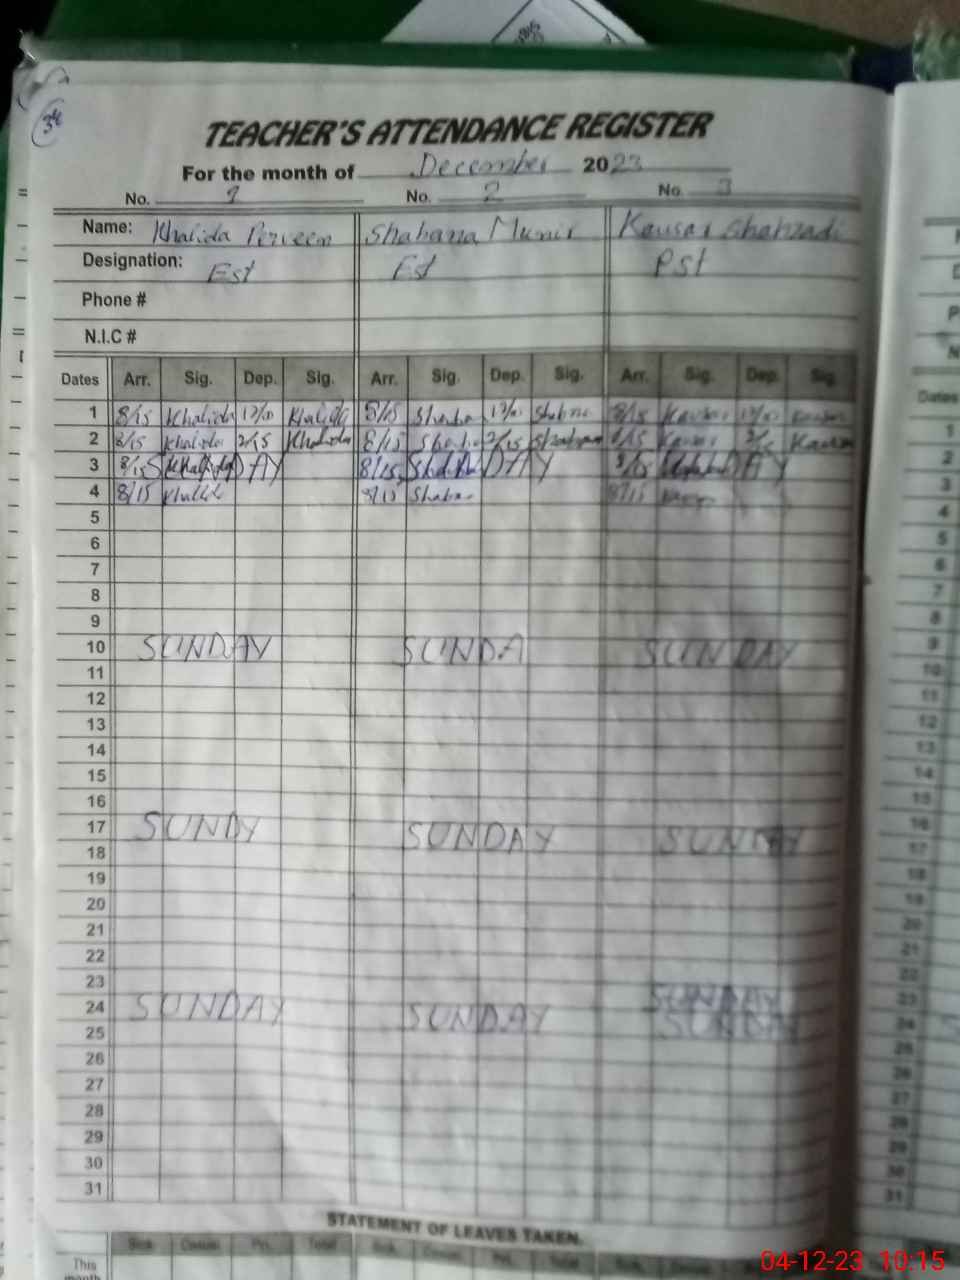 34
TEACHER'S ATTENDANCE REGISTER
For the month of December 2023
No. 1 No. 2 No. 3
Name: Khalida Perveen Shabana Munir Kausar Shahzadi
Designation: Est Est PSt
Phone #
N.I.C #
Dates Arr. Sig. Dep. Sig. Arr. Sig. Dep. Sig. Arr. Sig. Dep. Sig.
1 8/15 Khalida 12/00 Khalida 8/15 Shaba 12/00 Shabna 8/15 Kausar 12/00 Kausar
2 8/15 Khalida 2/15 Khalida 8/15 Shaba 2/15 Shabana 8/15 Kausar 2/15 Kausar
3 8/15 DAY 8/15 DAY DAY
4 8/15 Khalid 8/15 Shaban 8/15
5
6
7
8
9
10 SUNDAY SUNDA SUNDAY
11
12
13
14
15
16
17 SUNDY SUNDAY SUNDAY
18
19
20
21
22
23
SUNDAY
24 SUNDAY SUNDAY SUNDAY
25
26
27
28
29
30
31
STATEMENT OF LEAVES TAKEN.
Sick Casual Pri. Total Sick Casual Pri. Total
This
month
Dates
1
2
3
4
5
6
7
8
9
10
11
12
13
14
15
16
17
18
19
20
21
22
23
24
25
26
27
28
29
30
31
04-12-23 10:15